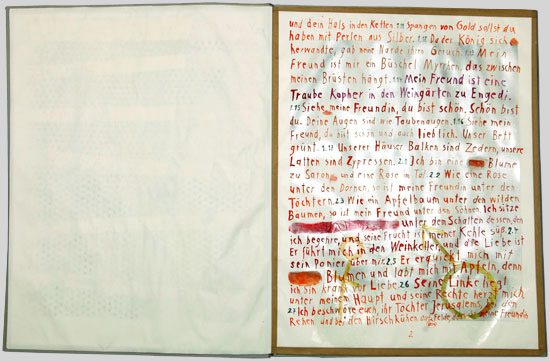 und dein Hals in den Ketten. 1.11 Spangen von Gold sollst du
haben mit Perlen aus Silber. 1.12 Da der König sich
herwandte, gab meine Narde ihren Geruch. 1.13 Mein
Freund ist mir ein Büschel Myrrhen, das zwischen
meinen Brüsten hängt. 1.14 Mein Freund ist eine
Traube Kopher in den Weingärten zu Engedi.
1.15 Siehe, meine Freundin, du bist schön. Schön bist
du. Deine Augen sind wie Taubenaugen. 1.16 Siehe mein
Freund, du bist schön und auch lieblich. Unser Bett
grünt. 1.17 Unserer Häuser Balken sind Zedern, unsere
Latten sind Zypressen. 2.1 Ich bin eine Blume
zu Saron und eine Rose im Tal. 2.2 Wie eine Rose
unter den Dornen, so ist meine Freundin unter den
Töchtern. 2.3 Wie ein Apfelbaum unter den wilden
Bäumen, so ist mein Freund unter den Söhnen. Ich sitze
unter dem Schatten dessen, den
ich begehre, und seine Frucht ist meiner Kehle süß. 2.4
Er führt mich in den Weinkeller, und die Liebe ist
sein Panier über mir. 2.5 Er erquickt mich mit
Blumen und labt mich mit Äpfeln, denn
ich bin krank vor Liebe. 2.6 Seine Linke liegt
unter meinem Haupt und seine Rechte herzt mich
2.7 Ich beschwöre euch, ihr Töchter Jerusalems, bei den
Rehen und bei den Hirschkühen auf dem Felde, meine Freundin
2